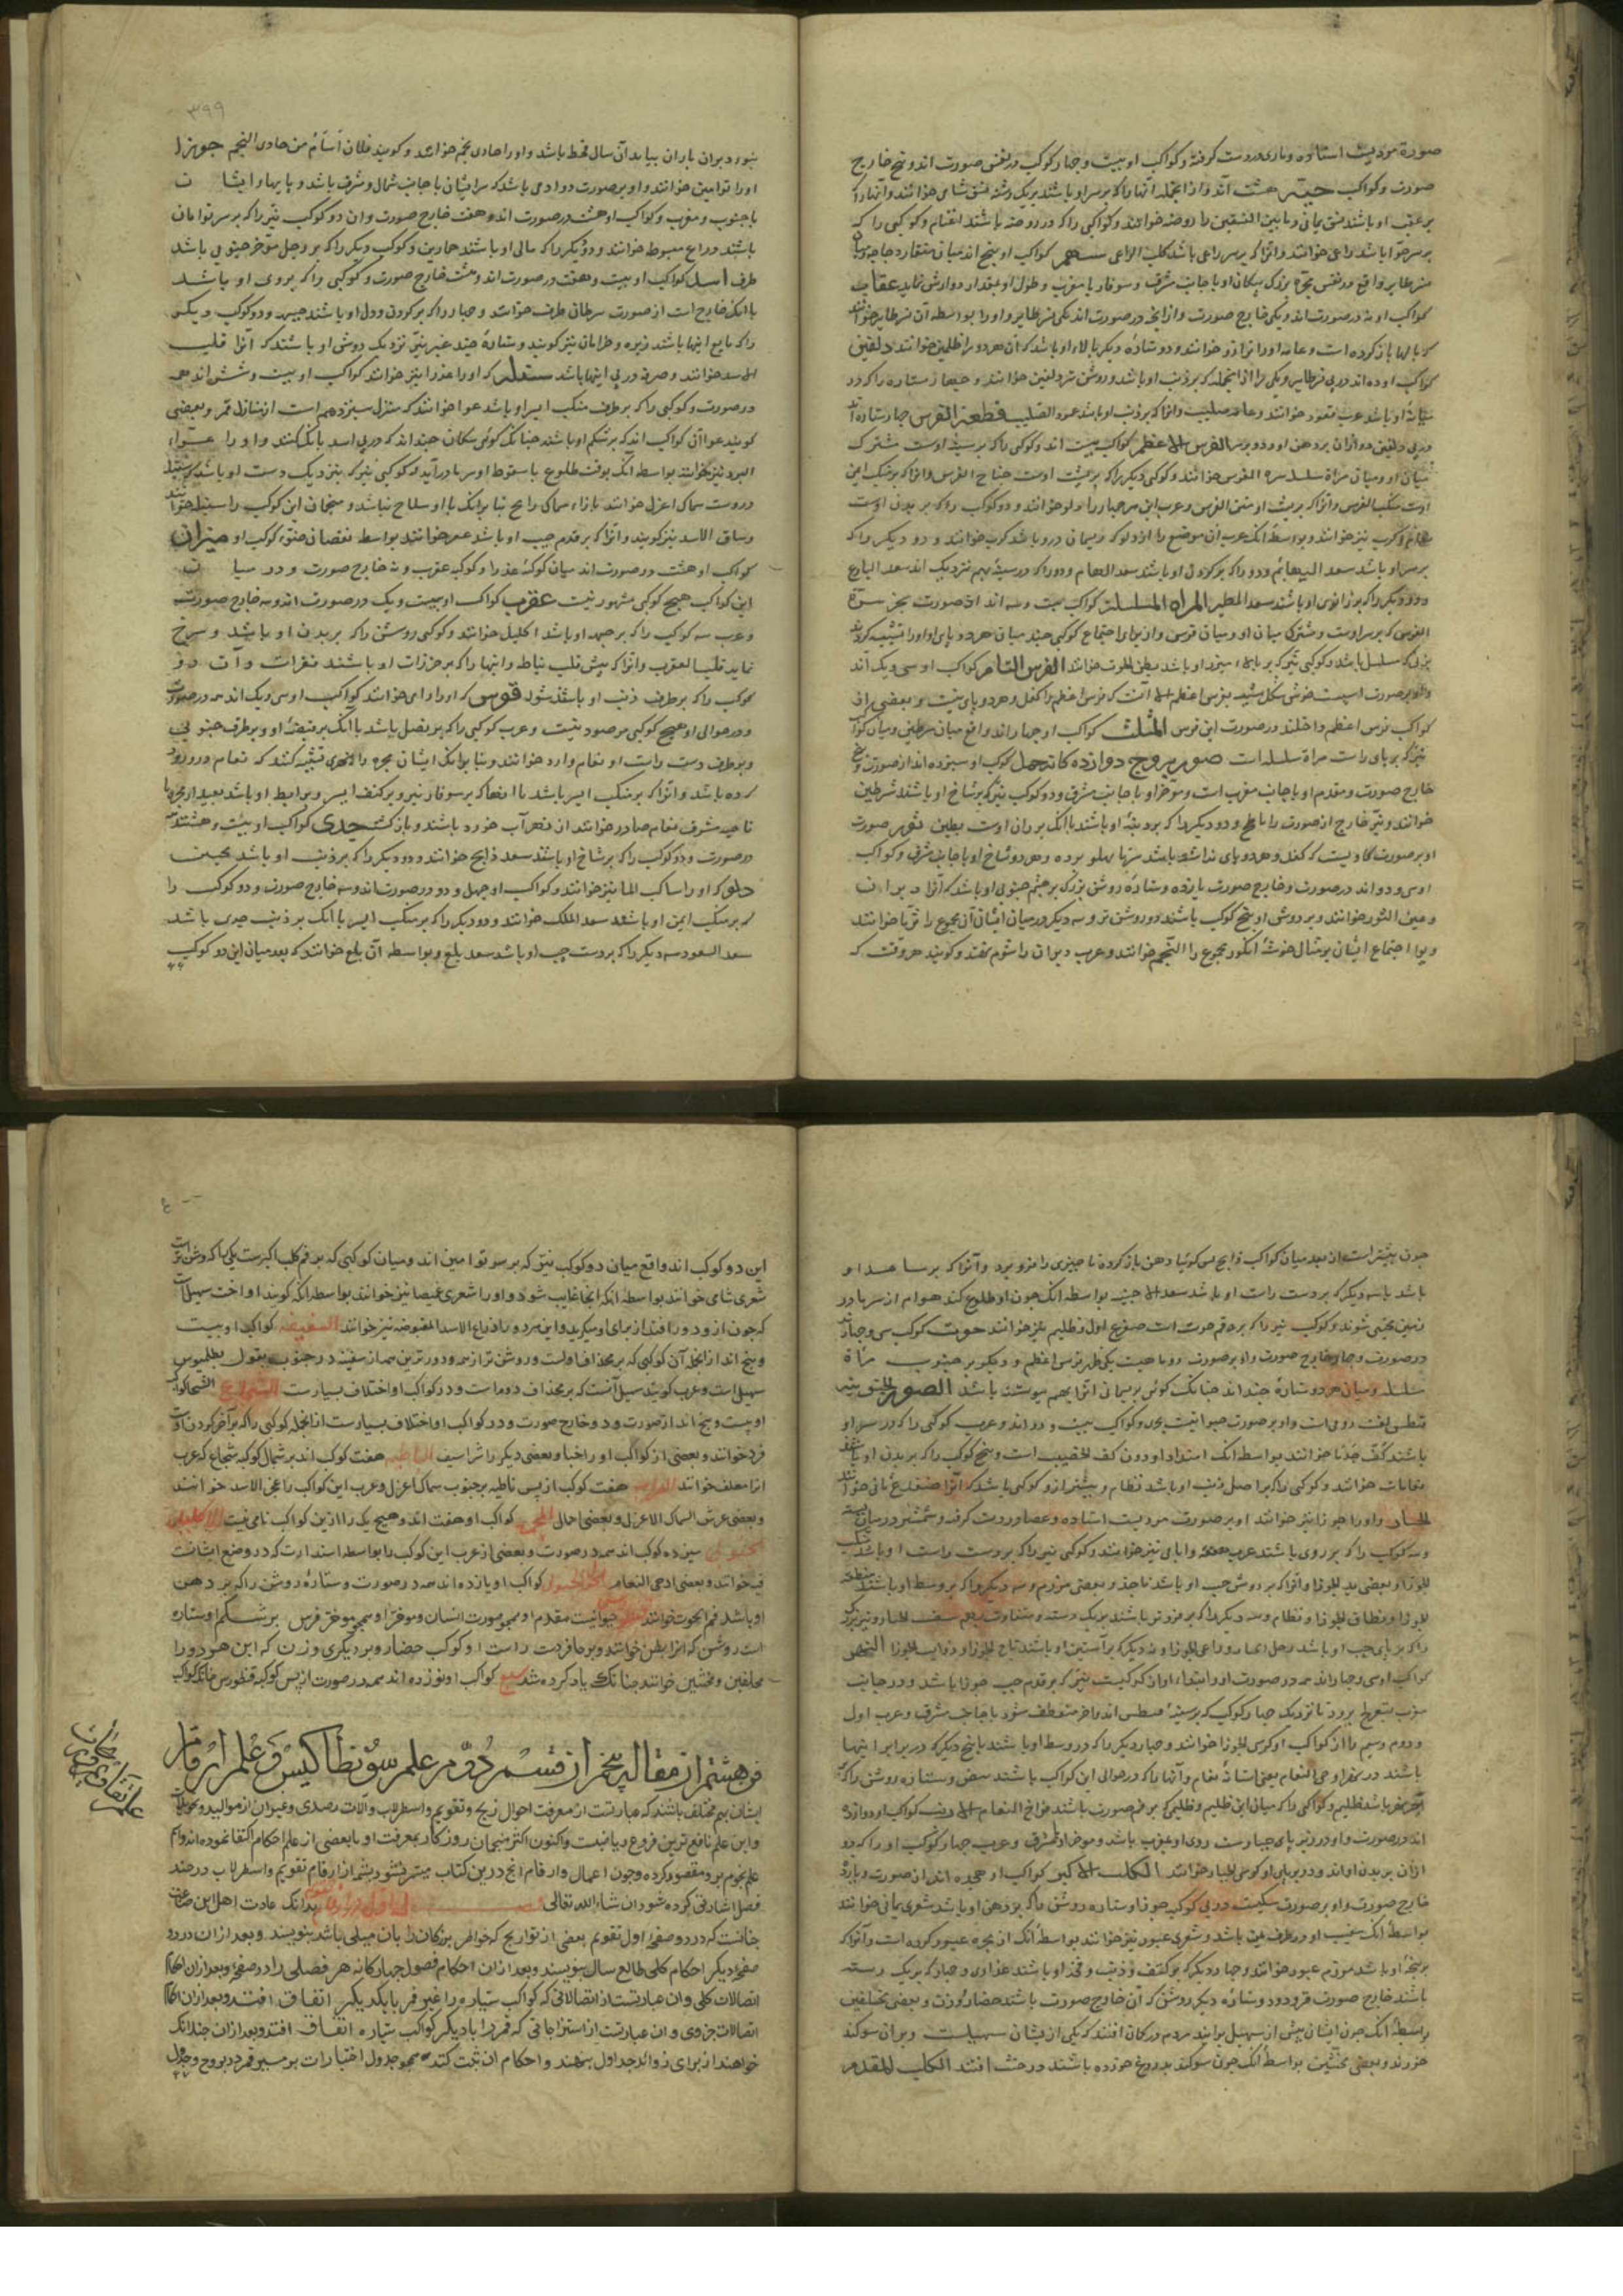 صورة مردیست استاده و ماری در دست گرفته و کواکب او بیست و چهار کوکب در نفس صورت اند و پنج خارج
صورت و کواکب حیّه هشت اند و از انجمله آنها را که بر سر او باشند بر یک رشته نسق شامی خوانند و آنها را که
بر عقب او باشند نسق یمانی و ما بین النسقین را روضه خوانند و کواکبی را که در روضه باشند اغنام و کوکبی را که
بر سر حوّا باشد راعی خوانند و آنرا که بر سر راعی باشد کلب الراعی سهم کواکب او پنج اند میان منقار دجاجه و میان
نسر طایر واقع در نفس مجرّه بزرگ پیکان او با جانب مشرق و سوفار با مغرب و طول او بمقدار دو ارش نماید عقاب
کواکب او نه در صورت اند و یکی خارج صورت و از آنچه در صورت اند یکی نسر طایر و او را بواسطه آن نسر طایر خوانند
که بالها باز کرده است و عامه او را ترازو خوانند و دو ستاره دیگر بالاء او باشد که آن هر دو را ظلیمین خوانند دلفین
کواکب او ده اند در پی نسر طایر و یکی را از انجمله که بر ذنب او باشد و روشن تر دلفین خوانند و چهار ستاره را که در
میانهٔ او باشد عرب عقود خوانند و عامه صلیب و آنرا که بر ذنب او باشد عمود الصلیب قطعة الفرس چهار ستاره اند
در پی دلفین دو از آن بر دهن او و دو بر سر الفرس الاعظم کواکب بیست اند و کوکبی را که بر سینهٔ اوست مشترک
میان او و میان مرأة سلسله سرة الفرس خوانند و کوکبی دیگر را که بر پشت اوست جناح الفرس و آنرا که بر منکب ایمن
اوست منکب الفرس و آنرا که بر پشت او متن الفرس و عرب این هر چهار را دلو خوانند و دو کوکب را که بر بدن اوست
نعام و کرب نیز خوانند و بواسطهٔ آنک عرب آن موضع را از دلو که ریسمان درو باشد کرب خوانند و دو دیگر را که
بر سر او باشد سعد البهایم و دو را که بر گردن او باشند سعد الهمام و دو را که در سینه بهم نزدیک اند سعد البارع
و دو دیگر را که بر زانوی او باشند سعد المطر المرأه المسلسله کواکب بیست و سه اند از صورت بجز سرة
الفرس که بر سر اوست و مشترک میان او و میان فرس و از برای اجتماع کوکبی چند میان هر دو پای او او را تشبیه کردند
بزنی که مسلسل باشد و کوکبی نیّر که بر بالاء میزر او باشد بطن الحوت خوانند الفرس التام کواکب او سی و یک اند
و او بر صورت اسبیست خوش شکل شبیه بفرس اعظم الا آنست که فرس اعظم را کفل و هر دو پای نیست و بعضی از
کواکب فرس اعظم داخلند در صورت این فرس المثلث کواکب او چهار اند واقع میان شرطین و میان کواکب
نیّر که بر پای راست مرأة سلسله است صور بروج دوازده گانه حمل کوکب او سیزده اند از صورت و پنج
خارج صورت و مقدم او با جانب مغرب است و مؤخر او با جانب مشرق و دو کوکب نیّر که بر شاخ او باشند شرطین
خوانند و نیّر خارج از صورت را ناطح و دو دیگر را که بر دنبهٔ او باشند با آنک بر ران اوست بطین ثور صورت
او بر صورت گاویست که کفل و هر دو پای نداشته باشد سر بپهلو برده و هر دو شاخ او با جانب مشرق و کواکب
او سی و دو اند در صورت و خارج صورت یازده و ستارهٔ روشن بزرگ بر چشم جنوبی او باشد که آنرا دبران
و عین الثور خوانند و بر دوش او پنج کوکب باشند دو روشن تر و سه دیگر در میان ایشان آن مجموع را ثریا خوانند
و برای اجتماع ایشان بر مثال خوشهٔ انگور مجموع را النجم خوانند و عرب دبران را شوم گفتند و گویند هر وقت که
۳۹۹
بنوء دبران باران بیاید آن سال قحط باشد و او را حادی نجم خوانند و گویند فلان اَشأم من حادی النجم جوزا
او را توأمین خوانند و او بر صورت دو آدمی باشد که سر ایشان با جانب شمال و مشرق باشد و پایها و ایشان
با جنوب و مغرب و کواکب او هشت ده در صورت اند و هفت خارج صورت و آن دو کوکب نیّر را که بر سر توأمان
باشند ذراع مبسوط خوانند و دو دیگر را که
طرف اسد کواکب او بیست و هفت در صورت اند و هشت خارج صورت و کوکبی را که بر روی او باشد
با آنک خارج است از صورت سرطان طرف خوانند و چهار را که بر گردن و دل او باشند جبهه و دو کوکب دیگر
را که تابع اینها باشند زبره و خراتان نیز گویند و ستارهٔ چند غیر نیّر نزدیک دوش او باشند که آنرا قلب
الاسد خوانند و صرفه در پی اینها باشد سنبله که او را عذرا نیز خوانند کواکب او بیست و شش اند همه
در صورت و کوکبی را که بر طرف منکب ایسر او باشد عوا خوانند که منزل سیزدهم است از منازل قمر و بعضی
گویند عوا آن کواکب اند که بر شکم او باشند چنانک گوئی سگان چند اند که در پی اسد بانگ کنند و او را عوّاء
البرد نیز خوانند بواسطه آنک بوقت طلوع یا سقوط او سرما درآید و کوکبی نیّر که بنزدیک دست او باشد که سنبله
در دست سماک اعزل خوانند بازاء سماک رامح بنا بر آنک با او سلاح نباشد و منجمان این کوکب را سنبله خوانند
و ساق الاسد نیز گویند و آنرا که بر قدم چپ او باشد غفر خوانند بواسطه نقصان ضوء کوکب او میزان
کواکب او هشت در صورت اند میان کوکبهٔ عذرا و کوکبهٔ عقرب و نه خارج صورت و در میان
این کواکب هیچ کوکبی مشهور نیست عقرب کواکب او بیست و یک در صورت اند و سه خارج صورت
و عرب سه کوکب را که بر جبههٔ او باشد اکلیل خوانند و کوکبی روشن را که بر بدن او باشد و سرخ
نماید قلب العقرب و آنرا که پیش قلب نیاط و اینها را که بر خرزات او باشند فقرات و آن دو
کوکب را که بر طرف ذنب او باشند شوله قوس که او را رامی خوانند کواکب او سی و یک اند همه در صورت
و در حوالی او هیچ کوکبی مرصود نیست و عرب کوکبی را که بر نصل باشد با آنک بر قبضهٔ او و بر طرف جنوبی
و بر طرف دست راست او نعام وارد خوانند و بنا بر آنک ایشان مجره را بنهری تشبیه کنند که نعام در رود
کرده باشد و آنرا که بر منکب ایسر باشد با آنها که بر سوفار تیر و بر کتف ایسر و بر ابط او باشد بعید از مجره با
ناحیه مشرق نعام صادر خوانند از نهر آب خورده باشند و بازگشته جدی کواکب او بیست و هشتند همه
در صورت و دو کوکب را که بر شاخ او باشند سعد ذابح خوانند و دو دیگر را که بر ذنب او باشد محبین
دلو که او را ساکب الماء نیز خوانند و کواکب او چهل و دو در صورت اند و سه خارج صورت و دو کوکب را
که بر منکب ایمن او باشند سعد الملک خوانند و دو دیگر را که بر منکب ایسر با آنک بر ذنب جدی باشد
سعد السعود سه دیگر را که بر دست چپ او باشد سعد بلع و بواسطه آن بلع خوانند که بعد میان این دو کوکب
چون بیشتر است از بعد میان کواکب ذابح پس گوئیا دهن باز کرده تا چیزی را فرو برد و آنرا که بر ساعد او
باشد با سه دیگر که بر دست راست او باشد سعد الاخبیه بواسطه آنک چون او طلوع کند هوام از سرما در
زمین مختفی شوند و کوکب نیّر را که بر فم حوت است ضفدع اول و ظلیم نیز خوانند حوت کوکب سی و چهار اند
در صورت و چهار خارج صورت و او بر صورت دو ماهیست یکی ظهر فرس اعظم و دیگر بر جنوب مرأة
سلسله و میان هر دو ستارهٔ چند اند چنانک گوئی بریسمانی آنرا بهم پیوسته باشد الصور الجنوبیه
باشند کفّ جذما خوانند بواسطه آنک امتداد او دون کف الخضیب است و پنج کوکب را که بر بدن او باشند
نعامات خوانند و کوکبی را که بر اصل ذنب او باشد نظام و بیشتر از دو کوکبی باشد که آنرا ضفدع ثانی خوانند
الجبار و او را جوزا نیز خوانند او بر صورت مردیست استاده و عصا در دست گرفته و شمشیر در میان بسته
جوزا و بعضی ید الجوزا و آنرا که بر دوش چپ او باشد ناجذ و بعضی مرزم و سه دیگر را که بر وسط او باشند منطقه
الجوزا و نطاق الجوزا و نظام
را که بر پای چپ او باشد رجل الجبار و راعی الجوزا و نه دیگر که بر آستین او باشند تاج الجوزا و ذوایب الجوزا النهر
کواکب او سی و چهار اند همه در صورت او را ابتداء او از کوکبیست نیّر که بر قدم چپ جوزا باشد و در جانب
مغرب بتعریج برود تا نزدیک چهار کوکب که بر سینهٔ قیطس اند و آخر منعطف شود با جانب مشرق و عرب اول
و دوم و سیم را از کواکب او کرسی الجوزا خوانند و چهار دیگر را که در وسط او باشند با پنج دیگر که در برابر اینها
باشند در نهر ادحی النعام یعنی آشیانه نعام و آنها را که در حوالی این کواکب باشند بیض و ستاره روشن را که
آخر نهر باشد ظلیم و کواکبی را که میان این ظلیم و ظلیمی که بر فم حوت باشند فراخ النعام الارنب کواکب او دوازده
اند در صورت و او در زیر پای جبار است روی او بمغرب باشد و مؤخر او بمشرق و عرب چهار کوکب او را که دو
از آن بر بدن او اند و دو بر پای او کرسی الجبار خوانند الکلب الاکبر کواکب او هجده اند از صورت و یازده
خارج صورت و او بر صورت سگیست در پی کوکبه جوزا و ستاره روشن را که بر دهن او باشد شعری یمانی خوانند
بواسطهٔ آنک مغیب او در طرف یمن باشد و شعری عبور نیز خوانند بواسطهٔ آنک از مجره عبور کرده است و آنرا که
بر پنجهٔ او باشد مرزم عبور خوانند و چهار دیگر که بر کتف و ذنب و فخذ او باشند عذاری و چهار که بر یک رسته
باشند خارج صورت قرود و دو ستاره دیگر روشن که آن خارج صورت باشند حضار و وزن و بعضی محلفین
بواسطهٔ آنک چون ایشان پیش از سهیل برآیند مردم در گمان افتند که یکی از ایشان سهیلست و بر آن سوگند
خورند و بعضی محنثین بواسطهٔ آنک چون سوگند بدروغ خورده باشند در حنث افتند الکلب المقدم
۴۰۰
این دو کوکب اند واقع میان دو کوکب نیّر که بر سر توأمین اند و میان کوکبی که بر فم کلب اکبرست یکی را که روشن تر است
شعری شامی خوانند بواسطه آنکه آنجا غایب شود و او را شعری غمیصا نیز خوانند بواسطه آنکه گویند او اخت سهیل است
که چون ازو دور افتد از برای او میگرید و این هر دو را ذراع الاسد المقبوضه نیز خوانند السفینه کواکب او بیست
و پنج اند از انجمله آن کوکبی که بر مجذاف اولست و روشن تر از همه و دورترین همه از سفینه در جنوب بقول بطلمیوس
سهیل است و عرب گویند سهیل آنست که بر مجذاف دوم است و در کواکب او اختلاف بسیارست الشجاع کواکب
او بیست و پنج اند از صورت و دو خارج صورت و در کواکب او اختلاف بسیارست از انجمله کوکبی را که بر آخر گردن اوست
فرد خوانند و بعضی از کواکب او را خبا و بعضی دیگر را شراسیف الباطیه هفت کوکب اند بر شمال کوکبه شجاع که عرب
آنرا معلف خوانند الغراب هفت کوکب از پس باطیه بر جنوب سماک اعزل و عرب این کواکب را عجز الاسد خوانند
و بعضی عرش السماک الاعزل و بعضی احمال المجمره کواکب او هفت اند و هیچ یک را ازین کواکب نامی نیست الاکلیل
الجنوبی سیزده کوکب اند همه در صورت و بعضی از عرب این کوکب را بواسطه استدارت که در وضع ایشانست
قبه خوانند و بعضی ادحی النعام الحوت الجنوبی کواکب او یازده اند همه در صورت و ستارهٔ روشن را که بر دهن
او باشد فم الحوت خوانند قنطورس حیوانیست مقدم او همچو صورت انسان و مؤخر او همچو مؤخر فرس بر شکم او ستاره
است روشن که آنرا بطن خوانند و بر حافر دست راست او کوکب حضار و بر دیگری وزن که این هر دو را
محلفین و محنثین خوانند چنانک یاد کرده شد سبع کواکب او نوزده اند همه در صورت از پس کوکبه قنطورس
فن هشتم از مقاله پنجم از قسم دوم در علم سونطاکیس و علم ارقام
ایشان بهم مختلف باشند که عبارتست از معرفت احوال زیج و تقویم و اسطرلاب و آلات رصدی و غیر آن از موالید و تحویلات
و این علم نافع ترین فروع ریاضیست و اکنون اکثر منجمان روزگار بمعرفت او با بعضی از علم احکام اکتفا نموده اند و از
علم نجوم برو مقصور کرده و چون اعمال و ارقام آنچ درین کتاب میسر نشود بشمهٔ از ارقام تقویم و اسطرلاب در چند
فصل اشارتی کرده شود ان شاء الله تعالی فصل اول در ارقام تقویم بدانک عادت اهل این صناعت
چنانست که در دو صفحه اول تقویم بعضی از تواریخ که خواطر بزرگان را بآن میلی باشد بنویسند و بعد از آن در دو
صفحه دیگر احکام کلی طالع سال بنویسند و بعد از آن احکام فصول چهارگانه هر فصلی را در صفحهٔ و بعد از آن احکام
اتصالات کلی و آن عبارتست از اتصالاتی که کواکب سیّاره را غیر قمر با یکدیگر اتفاق افتد و بعد از آن احکام
اتصالات جزوی و آن عبارتست از امتزاجاتی که قمر را با دیگر کواکب سیاره اتفاق افتد و بعد از آن چندانک
خواهند از برای زوائد جداول بنهند و احکام آن ثبت کنند همچو جدول اختیارات بر مسیر قمر در بروج و جدول